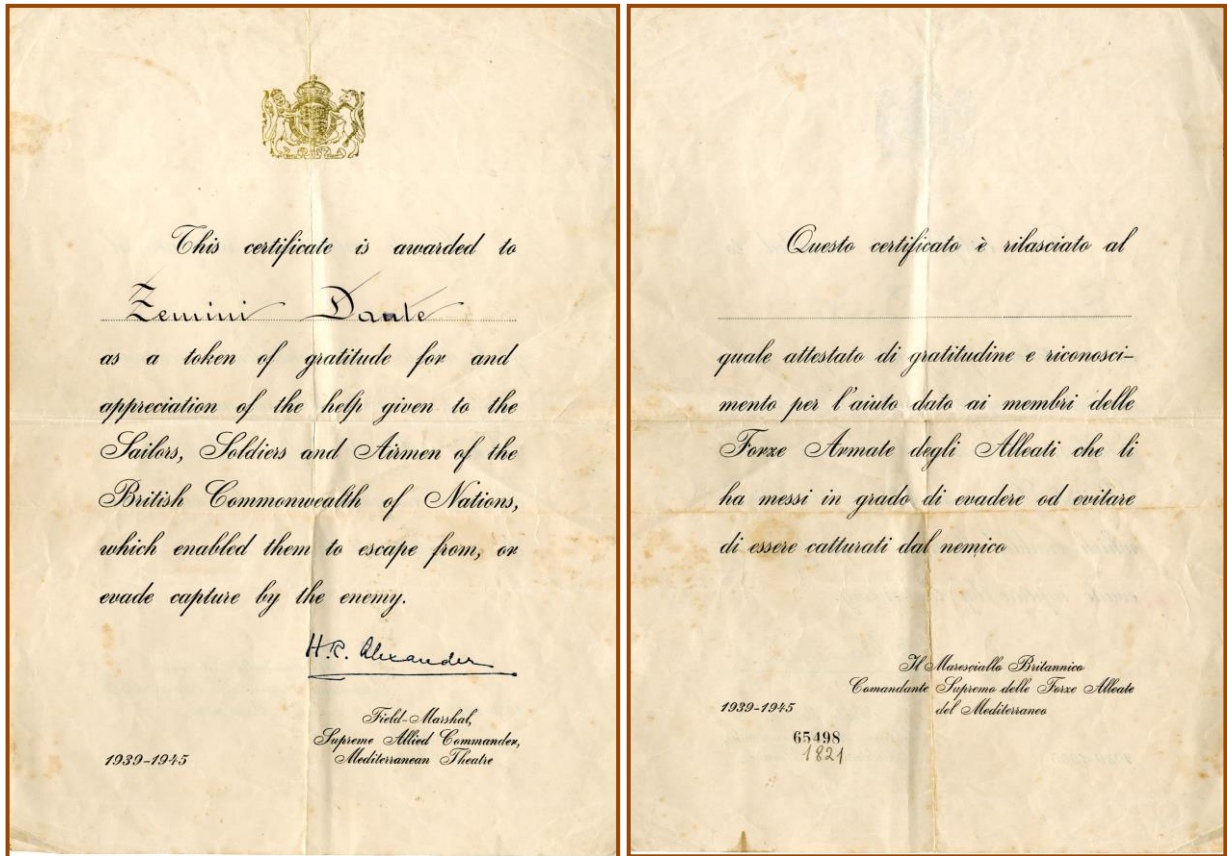 This certificate is awarded to
Zemini Dante
as a token of gratitude for and
appreciation of the help given to the
Sailors, Soldiers and Airmen of the
British Commonwealth of Nations,
which enabled them to escape from, or
evade capture by the enemy.
H.R. Alexander
Field-Marshal,
Supreme Allied Commander,
Mediterranean Theatre
1939-1945
Questo certificato è rilasciato al
quale attestato di gratitudine e riconosci-
mento per l'aiuto dato ai membri delle
Forze Armate degli Alleati che li
ha messi in grado di evadere od evitare
di essere catturati dal nemico
Il Maresciallo Britannico
Comandante Supremo delle Forze Alleate
del Mediterraneo
1939-1945
65498
1821